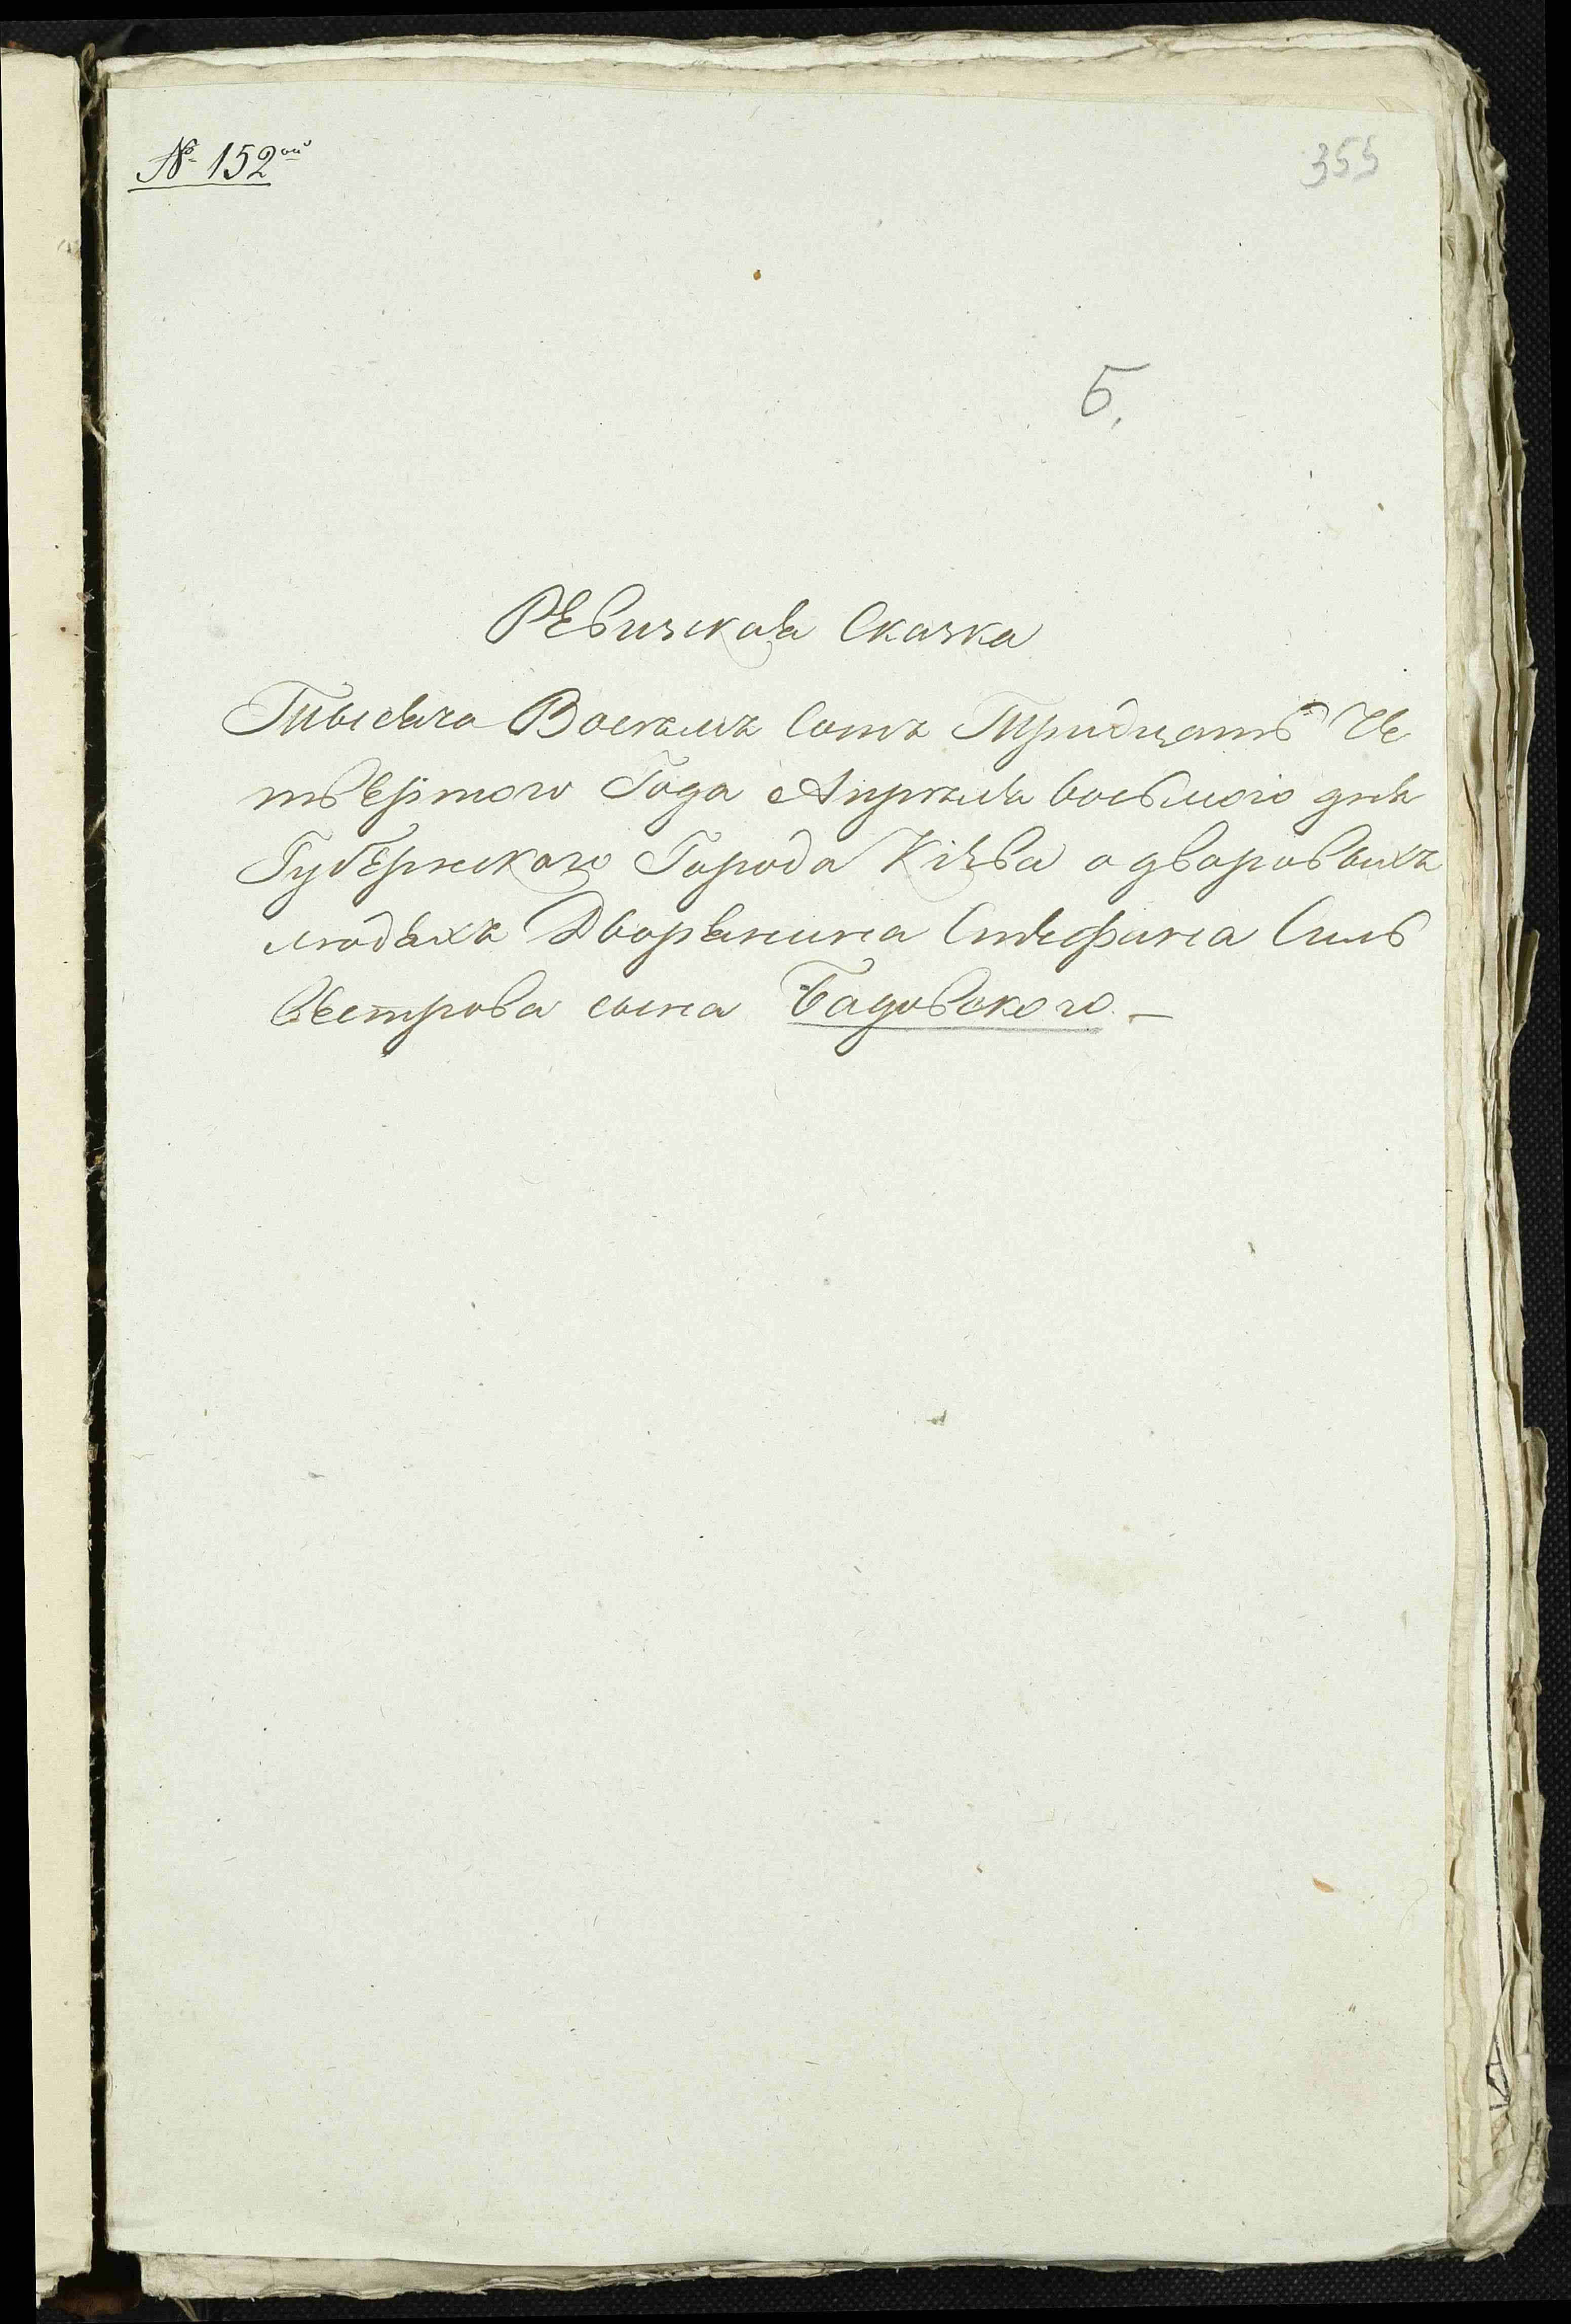 № 152ой
355
Б.
Ревизская Сказка
Тысяча Восемъ Сотъ Тридцать Че
твертого Года Апреля восьмого дня
Губернского Города Кіева о дворовыхъ
людяхъ Дворянина Стефана Силь
вестрова сына Бадовского. —